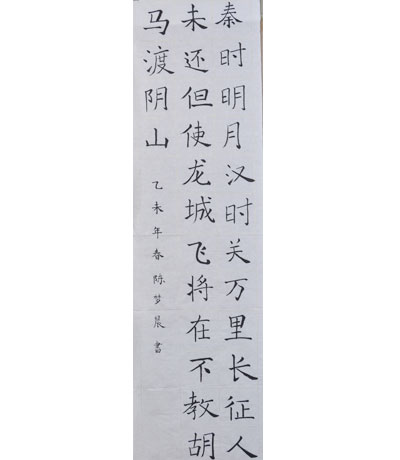 秦时明月汉时关万里长征人
未还但使龙城飞将在不教胡
马渡阴山
乙未年春陈梦晨書